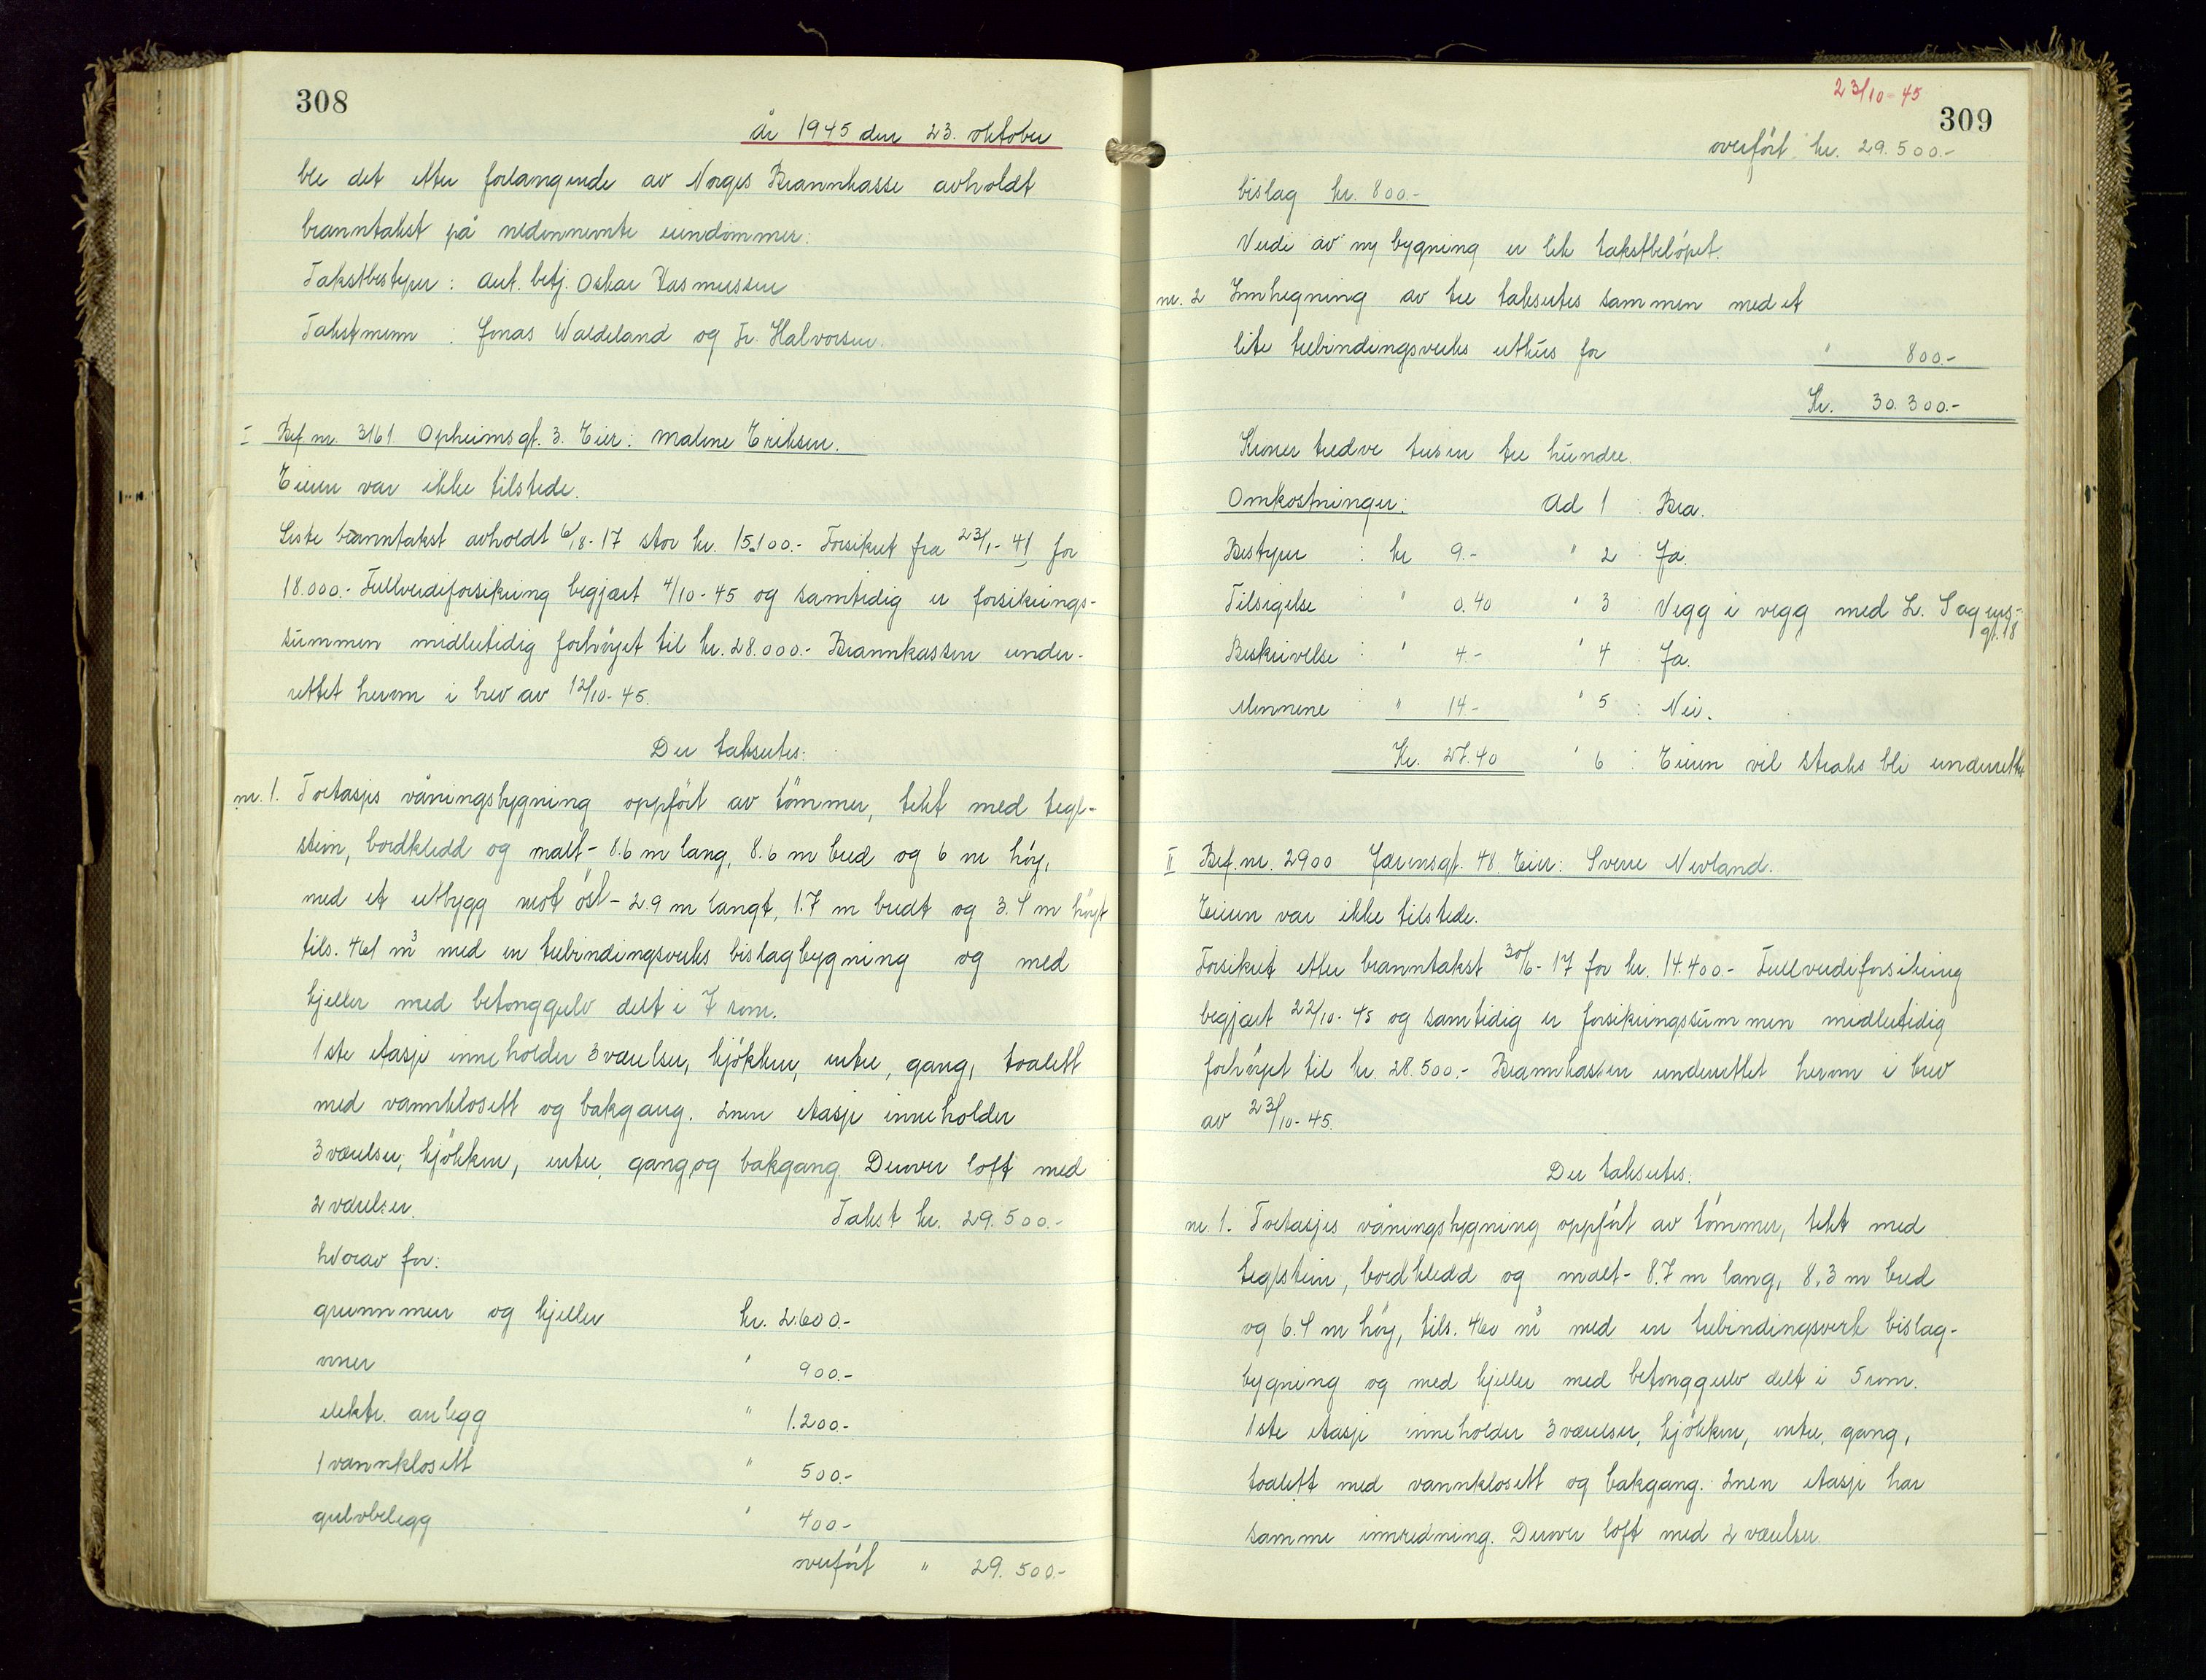 308
år 1945 den 23. oktober
ble det etter forlangende av Norges Brannkasse avholdt
branntakst på nedennevnte eiendommer:
Takstbestyrer: aut. betj. Oskar Rasmussen
Takstmenn : Jonas Waldeland og Fr. Halvorsen.
I Bef nr. 3161 Opheimsgt. 3. Eier: Maline Eriksen.
Eieren var ikke tilstede.
Siste branntakst avholdt 6/8-17 stor kr. 15.100.- Forsikret fra 23/1-41 for
18.000.- Fullverdiforsikring begjært 4/10-45 og samtidig er forsikrings-
summen midlertidig forhöyet til kr. 28.000.- Brannkassen under-
rettet herom i brev av 12/10-45.
Der takseres:
nr. 1. Toetasjes våningsbygning oppfört av tömmer, tekt med tegl-
stein, bordkledd og malt- 8.6 m lang, 8.6 m bred og 6 m höy,
med et utbygg mot öst- 2.9 m langt, 1.7 m bredt og 3.4 m höyt
tils. 461 m³ med en trebindingsverks bislagbygning og med
kjeller med betonggulv delt i 7 rom.
1ste etasje inneholder 3 værelser, kjökken, entre, gang, toalett
med vannklosett og bakgang. 2nen etasje inneholder
3 værelser, kjökken, entre, gang og bakgang. Derover loft med
2 værelser. Takst kr. 29.500.-
hvorav for:
grunnmur og kjeller kr. 2.600.-
ovner " 900.-
elektr. anlegg " 1.200.-
1 vannklosett " 500.-
gulvbelegg " 400.-
overfört " 29.500.-
23/10-45
309
overfört kr. 29.500.-
bislag kr. 800.-
Verdi av ny bygning er lik takstbelöpet.
nr. 2 Innhegning av tre takseres sammen med et
lite trebindingsverks uthus for " 800.-
Kr. 30.300.-
Kroner tredve tusen tre hundre.
Omkostninger: Ad 1 : Bra.
Bestyrer : kr 9.- " 2 : Ja.
Tilsigelse " 0.40 " 3 : Vegg i vegg med L. Sagens-
gt. 18
Beskrivelse : " 4.- " 4 : Ja.
Mennene : " 14.- " 5 : Nei.
Kr. 27.40 " 6 : Eieren vil straks bli underrettet
II Bef. nr. 2900 Jærensgt. 48. Eier: Sverre Nevland.
Eieren var ikke tilstede.
Forsikret etter branntakst 30/6-17 for kr. 14.400.- Fullverdiforsikring
begjært 22/10-45 og samtidig er forsikringssummen midlertidig
forhöyet til kr. 28.500.- Brannkassen underrettet herom i brev
av 23/10-45.
Der takseres:
nr. 1. Toetasjes våningsbygning oppfört av tömmer, tekt med
teglstein, bordkledd og malt- 8.7 m lang, 8.3 m bred
og 6.4 m höy, tils. 460 m³ med en trebindingsverk bislag-
bygning og med kjeller med betonggulv delt i 5 rom.
1ste etasje inneholder 3 værelser, kjökken, entre, gang,
toalett med vannklosett og bakgang. 2nen etasje har
samme innredning. Derover loft med 2 værelser.